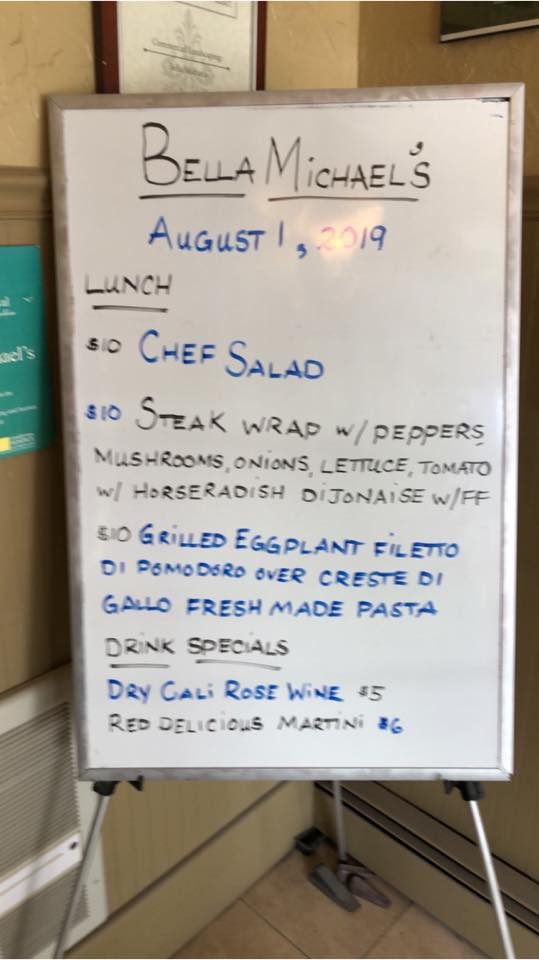 Commercial Landscaping
BELLA MICHAEL'S
AUGUST 1, 2019
LUNCH
$10 CHEF SALAD
$10 STEAK WRAP W/ PEPPERS
MUSHROOMS, ONIONS, LETTUCE, TOMATO
W/ HORSERADISH DIJONAISE W/FF
$10 GRILLED EGGPLANT FILETTO
DI POMODORO OVER CRESTE DI
GALLO FRESH MADE PASTA
DRINK SPECIALS
DRY CALI ROSE WINE $5
RED DELICIOUS MARTINI $6
ael's